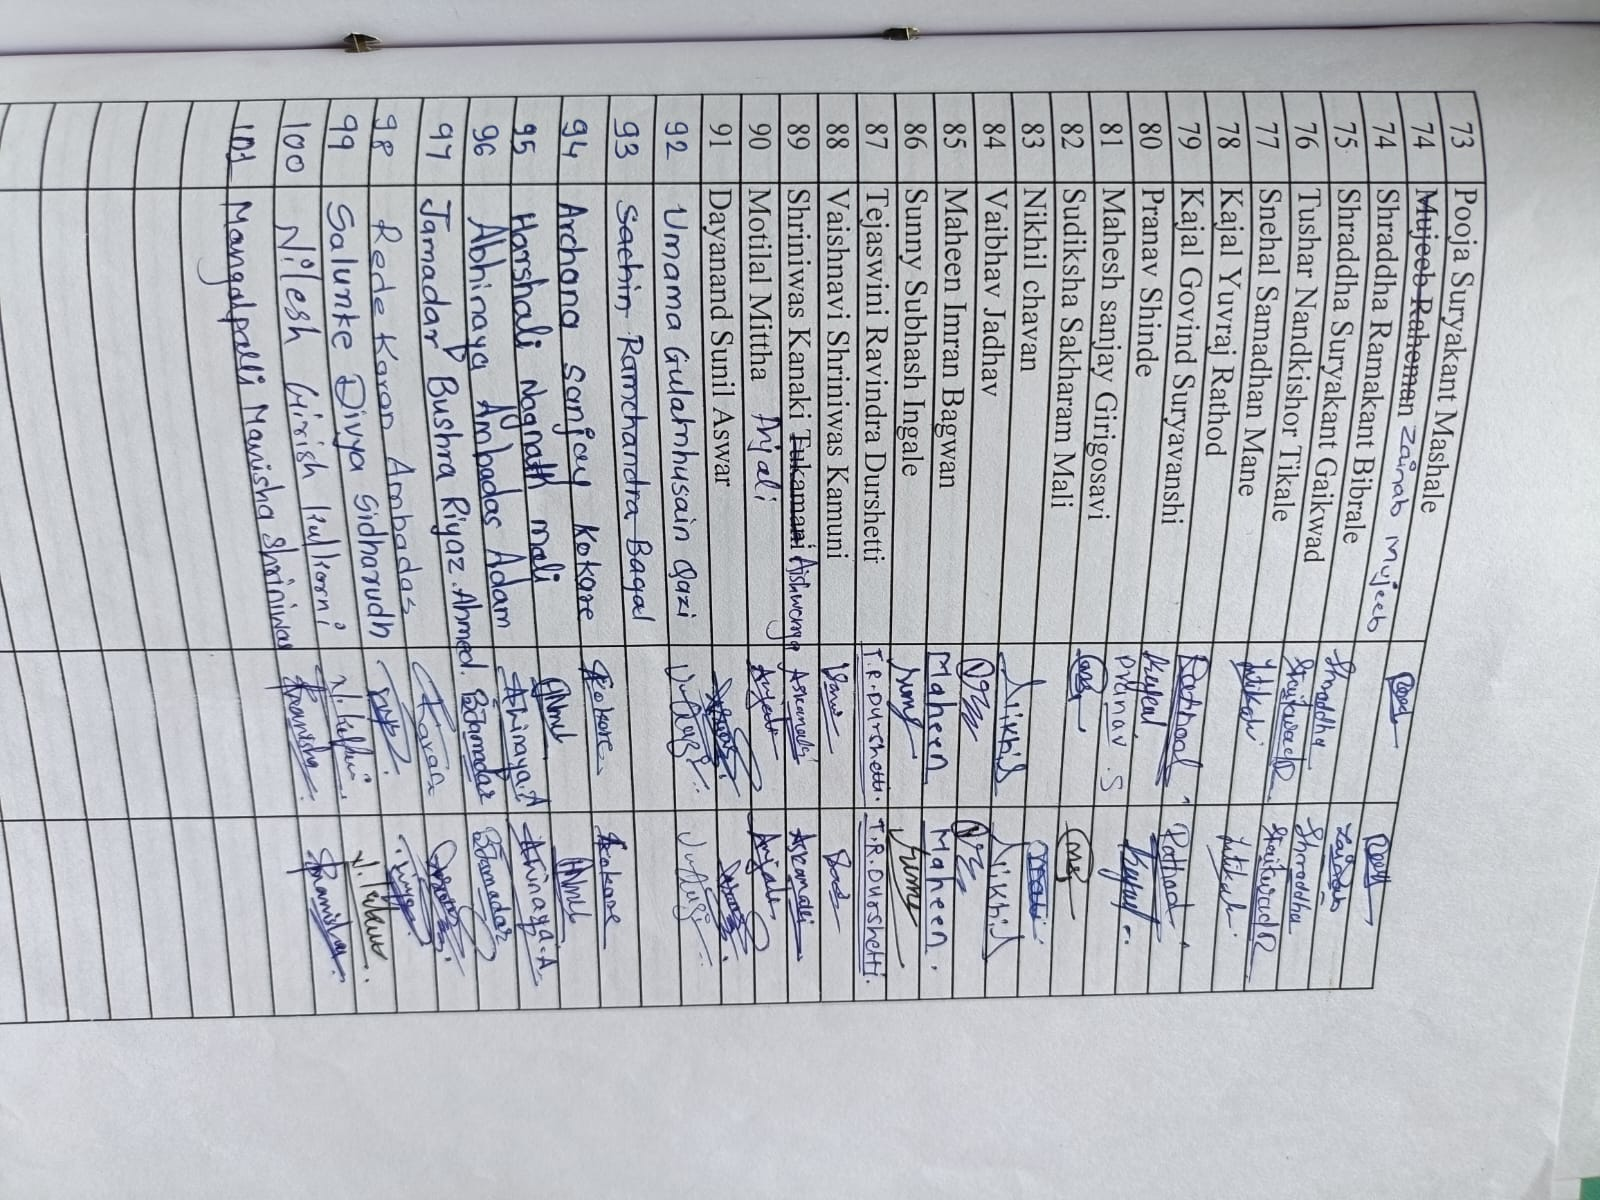 73 Pooja Suryakant Mashale
74 Mujeeb Raheman Zainab Mujeeb
74 Shraddha Ramakant Bibrale
75 Shraddha Suryakant Gaikwad Shraddha Shraddha
76 Tushar Nandkishor Tikale
77 Snehal Samadhan Mane
78 Kajal Yuvraj Rathod Rathod Rathod
79 Kajal Govind Suryavanshi
80 Pranav Shinde Pranav . S
81 Mahesh sanjay Girigosavi
82 Sudiksha Sakharam Mali
83 Nikhil chavan Nikhil Nikhil
84 Vaibhav Jadhav
85 Maheen Imran Bagwan Maheen Maheen.
86 Sunny Subhash Ingale Sunny Sunny
87 Tejaswini Ravindra Durshetti T.R.Durshetti. T.R.Durshetti.
88 Vaishnavi Shriniwas Kamuni
89 Shriniwas Kanaki Tukamani Aishwarya
90 Motilal Mittha Anjali Anjali Anjali
91 Dayanand Sunil Aswar
92 Umama Gulamhusain Qazi
93 Sachin Ramchandra Bagal
94 Archana Sanjay Kokare Kokare Kokare
95 Harshali Nagnath Mali
96 Abhinaya Ambadas Adam Abhinaya.A Abhinaya.A
97 Jamadar Bushra Riyaz Ahmed. BJamadar BJamadar
98 Rede Karan Ambadas Karan
99 Salunke Divya Sidharudh
100 Nilesh Girish Kulkarni
101 Mangalpalli Manisha Shriniwas